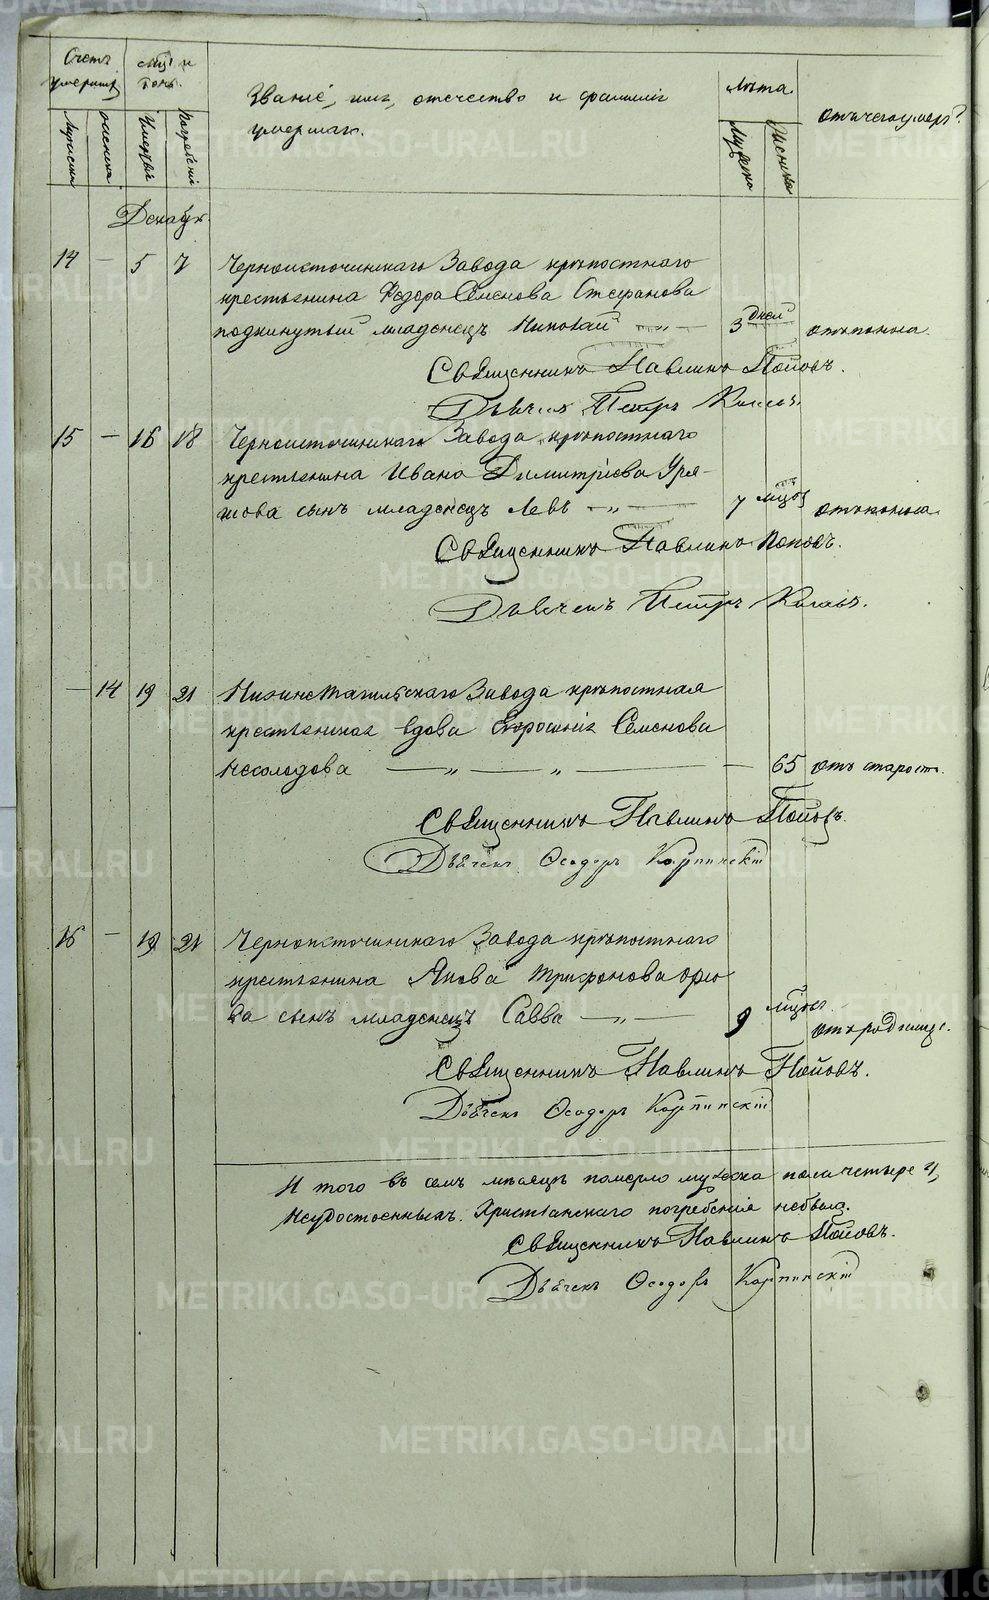 Счетъ умершихъ
мѣс. и день.
Званіе, имя, отчество и фамилія
умершаго.
Лѣта.
отъ чего умеръ?
Мужеска
женска
Умерш.
Погребенія
Мужеска
Женска
Декабрь.
14 — 5 7 Черноисточинскаго Завода крѣпостнаго
крестьянина Ѳедора Семенова Стефанова
подкинутый младенецъ Николай —„— 3 дней отъ поноса.
Священникъ Павлинъ Поповъ.
Дьячекъ Петръ
15 — 16 18 Черноисточинскаго Завода крѣпостнаго
крестьянина Ивана Димитріева Уря-
шова сынъ младенецъ Левъ —„— 7 мѣсяц. отъ поноса
Священникъ Павлинъ Поповъ.
Дьячекъ Петръ
— 14 19 21 Нижнетагильскаго Завода крѣпостная
крестьянская вдова Ефросинія Семенова
Несолодова —„—„— — 65 отъ старост.
Священникъ Павлинъ Поповъ.
Дьячекъ Ѳеодоръ Карпинскій
16 — 19 21 Черноисточинскаго Завода крѣпостнаго
крестьянина Якова Трифонова Орло
ва сынъ младенецъ Савва —„— 9 мѣсяц. отъ родимца.
Священникъ Павлинъ Поповъ.
Дьячекъ Ѳеодоръ Карпинскій
И того въ семъ мѣсяцѣ померло мужеска пола четыре 4,
неудостоенныхъ Христіанскаго погребенія небыло.
Священникъ Павлинъ Поповъ.
Дьячекъ Ѳеодоръ Карпинскій
METRIKI.GASO-URAL.RU